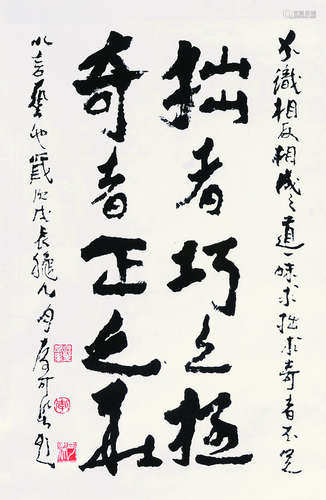 不識相反相成之道一味求拙求奇者不足
拙者巧之極
奇者正之華
以言藝也歲次戌九月題